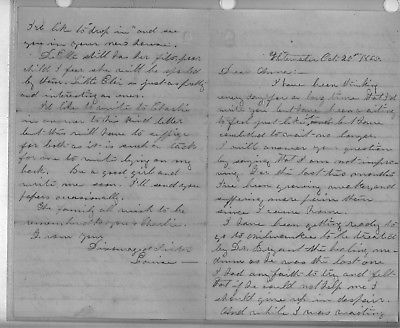 I'd like to "drop in" and see
you in your new home.
Little still has her fits, poor
child I fear she will be spoiled
by them. Little Elsie is just as pretty
and interesting as ever.
I'd like to write to Charlie
in answer to his kind letter
but this will have to suffice
for both as it is such a task
for me to write lying on my
back. Be a good girl and
write me soon. I'll send you
papers occasionally.
The family all wish to be
remembered to you & Charlie.
I am your
Sister
Louise
Oct. 20th
Dear Anna:
I have been thinking
every day for a long time that I'd
write you but have been waiting
to feel just like it and but have
concluded to wait no longer.
I will answer your question
by saying that I am not impro-
ving. For the last two months
I've been growing weaker, and
suffering more pain than
since I came home.
I have been getting ready to
go to to be treated
by Dr. Bryant the healing me-
dium as he was the last one
I had any faith to try and felt
that if he could not help me I
should give up in despair.
And while I was waiting